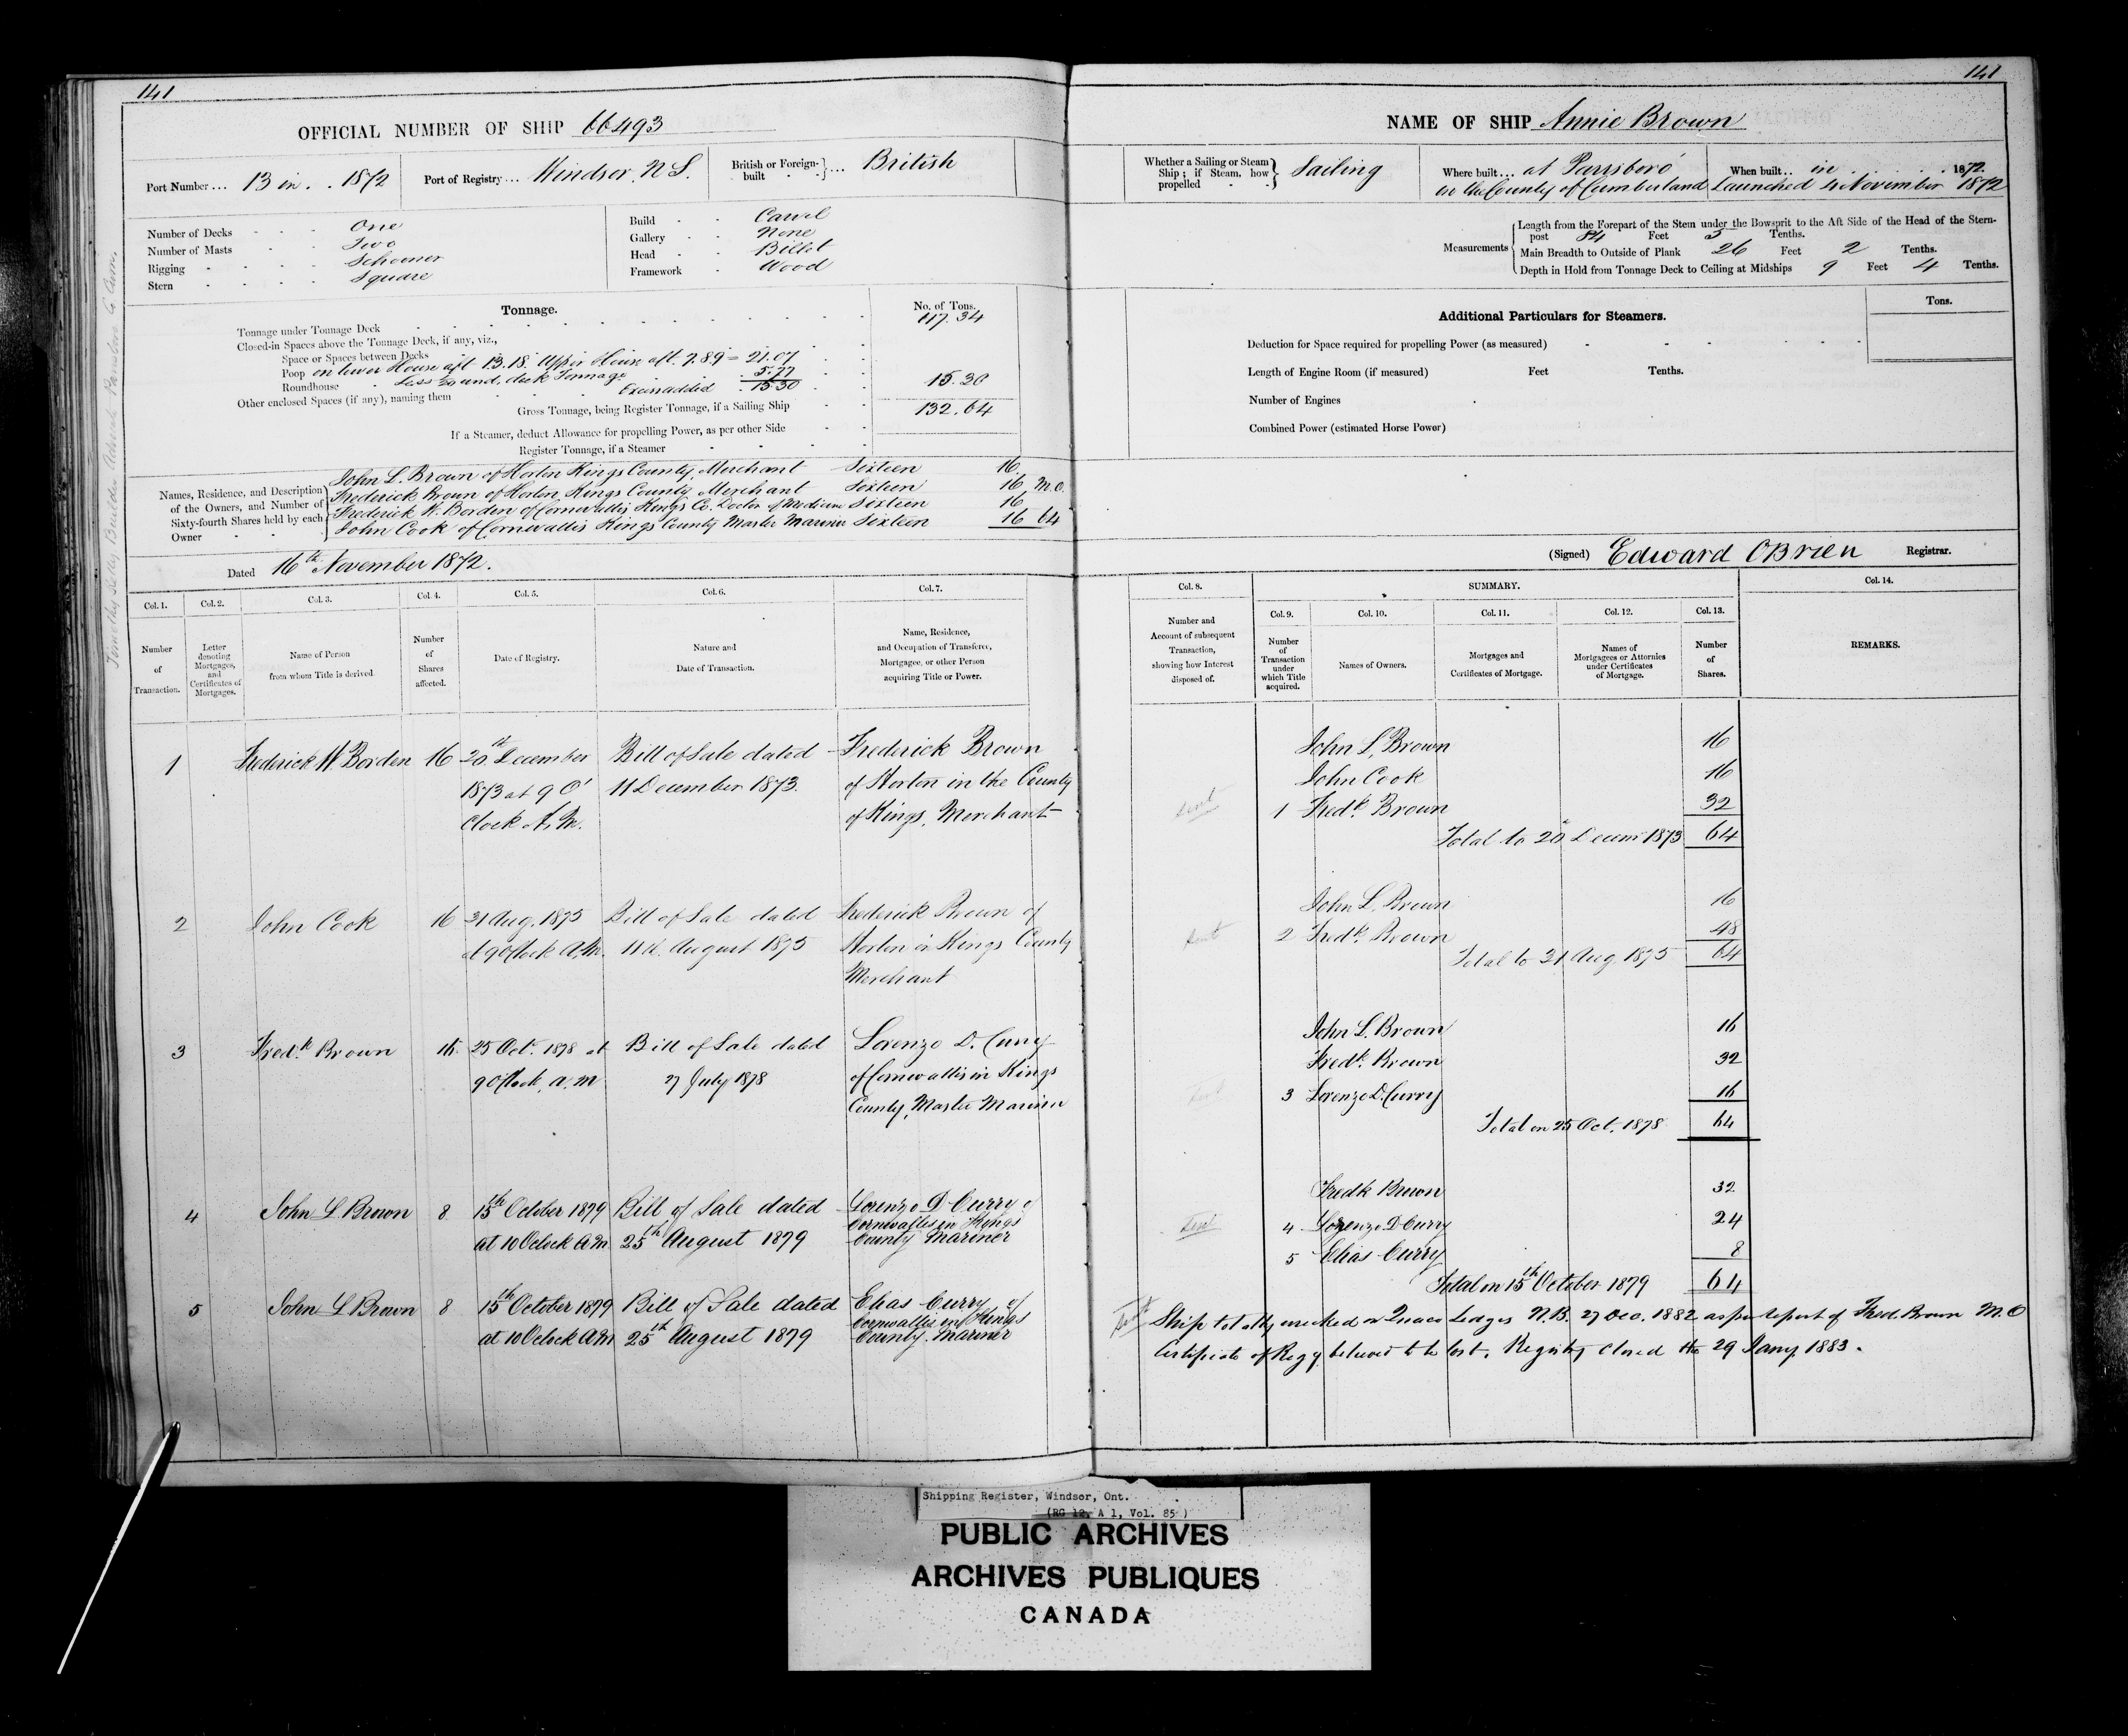 141
141
OFFICIAL NUMBER OF SHIP 66493
NAME OF SHIP Annie Brown
Port Number ... 13 in . . 1872
Port of Registry ... Windsor, N S.
British or Foreign-built ... British
Whether a Sailing or Steam Ship; if Steam, how propelled Sailing
Where built ... at Parrsboro' in the County of Cumberland
When built .. in 1872. Launched 4 November 1872
Number of Decks One
Number of Masts Two
Rigging Schooner
Stern Square
Build Carvel
Gallery None
Head Billet
Framework Wood
Measurements
Length from the Forepart of the Stem under the Bowsprit to the Aft Side of the Head of the Stern-
post 84 Feet 5 Tenths.
Main Breadth to Outside of Plank 26 Feet 2 Tenths.
Depth in Hold from Tonnage Deck to Ceiling at Midships 9 Feet 4 Tenths.
Tonnage.
No. of Tons.
Tonnage under Tonnage Deck 117.34
Closed-in Spaces above the Tonnage Deck, if any, viz.,
Space or Spaces between Decks
Poop on lower House aft 13.18. Upper House aft. 7.89 = 21.07
Roundhouse Less deck Tonnage 5.77
Other enclosed Spaces (if any), naming them Excess added 15.30 15.30
Gross Tonnage, being Register Tonnage, if a Sailing Ship 132.64
If a Steamer, deduct Allowance for propelling Power, as per other Side
Register Tonnage, if a Steamer
Additional Particulars for Steamers.
Tons.
Deduction for Space required for propelling Power (as measured)
Length of Engine Room (if measured) Feet Tenths.
Number of Engines
Combined Power (estimated Horse Power)
Names, Residence, and Description of the Owners, and Number of Sixty-fourth Shares held by each Owner
John L. Brown of Horton Kings County, Merchant Sixteen 16
Frederick Brown of Horton Kings County Merchant Sixteen 16 M.O.
Frederick W. Borden of Cornwallis Kings Co. Doctor of Medicine Sixteen 16
John Cook of Cornwallis Kings County Master Mariner Sixteen 16 64
Dated 16th November 1872.
(Signed) Edward OBrien Registrar.
Col. 1. Col. 2. Col. 3. Col. 4. Col. 5. Col. 6. Col. 7.
Number of Transaction.
Letter denoting Mortgages, and Certificates of Mortgages.
Name of Person from whom Title is derived
Number of Shares affected.
Date of Registry.
Nature and Date of Transaction.
Name, Residence, and Occupation of Transferee, Mortgagee, or other Person acquiring Title or Power.
Col. 8. SUMMARY. Col. 14.
Col. 9. Col. 10. Col. 11. Col. 12. Col. 13.
Number and Account of subsequent Transaction, showing how Interest disposed of.
Number of Transaction under which Title acquired.
Names of Owners.
Mortgages and Certificates of Mortgage.
Names of Mortgagees or Attornies under Certificates of Mortgage.
Number of Shares.
REMARKS.
1 Frederick W. Borden 16 20th December Bill of Sale dated Frederick Brown
1873 at 9 O' 11 December 1873. of Horton in the County
Clock A.M. of Kings, Merchant
John L. Brown 16
John Cook 16
sent 1 Fredk. Brown 32
Total to 20 Decem 1873 64
2 John Cook 16 21 Aug. 1875 Bill of Sale dated Frederick Brown of
at 9 O'Clock A.M. 11th. August 1875 Horton in Kings County
Merchant
John L. Brown 16
sent 2 Fredk. Brown 48
Total to 21 Aug. 1875 64
3 Fredk. Brown 16 25 Oct. 1878 at Bill of Sale dated Lorenzo D. Curry
9 O'Clock, a.m 27 July 1878 of Cornwallis in Kings
County, Master Mariner
John L. Brown 16
Fredk. Brown 32
sent 3 Lorenzo D. Curry 16
Total on 25 Oct. 1878 64
4 John L Brown 8 15th October 1879 Bill of Sale dated Lorenzo D Curry of
at 10 Oclock A.M 25th August 1879 Cornwallis in Kings
County Mariner
Fredk Brown 32
Sent 4 Lorenzo D Curry 24
5 Elias Curry 8
Total on 15th October 1879 64
5 John L Brown 8 15th October 1879 Bill of Sale dated Elias Curry of
at 10 Oclock A.M 25th August 1879 Cornwallis in Kings
County. Mariner
Ship totally wrecked on Quaco Ledges N.B. 27 Dec. 1882 as per report of Fred. Brown M.O
Certificate of Regy. believed to be lost. Registry closed this 29 Jany. 1883.
Shipping Register, Windsor, Ont.
(RG 12, A 1, Vol. 85)
PUBLIC ARCHIVES
ARCHIVES PUBLIQUES
CANADA